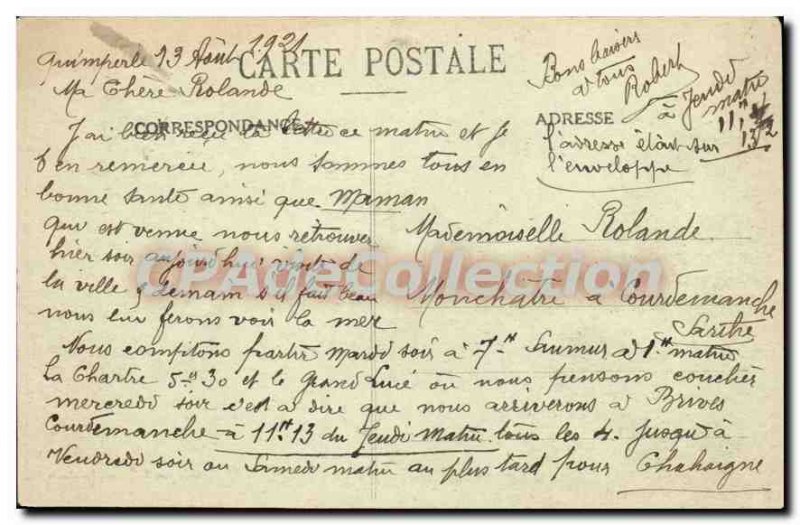 Quimperlé 13 Août 1921
CARTE POSTALE
Ma Chère Rolande
CORRESPONDANCE
J'ai bien reçu ta lettre ce matin et Je
t'en remercie, nous sommes tous en
bonne santé ainsi que Maman
qui est venue nous retrouver
hier soir aujourd'hui visite de
la ville, Demain s'il fait beau
nous lui ferons voir la mer
Nous comptons partir Mardi soir à 7h Saumur à 1h matin
La Chartre 5h30 et le Grand Lucé où nous pensons coucher
mercredi soir c'est à dire que nous arriverons à Brives
Courdemanche à 11h13 du Jeudi Matin tous les 4. Jusqu'à
Vendredi soir ou Samedi matin au plus tard pour Chahaigne
Bons baisers
à tous
Robert
à Jeudi
matin
11h
13
ADRESSE
l'adresse étant sur
l'enveloppe
Mademoiselle Rolande
Monchâtre à Courdemanche
Sarthe
CPADeCollection.